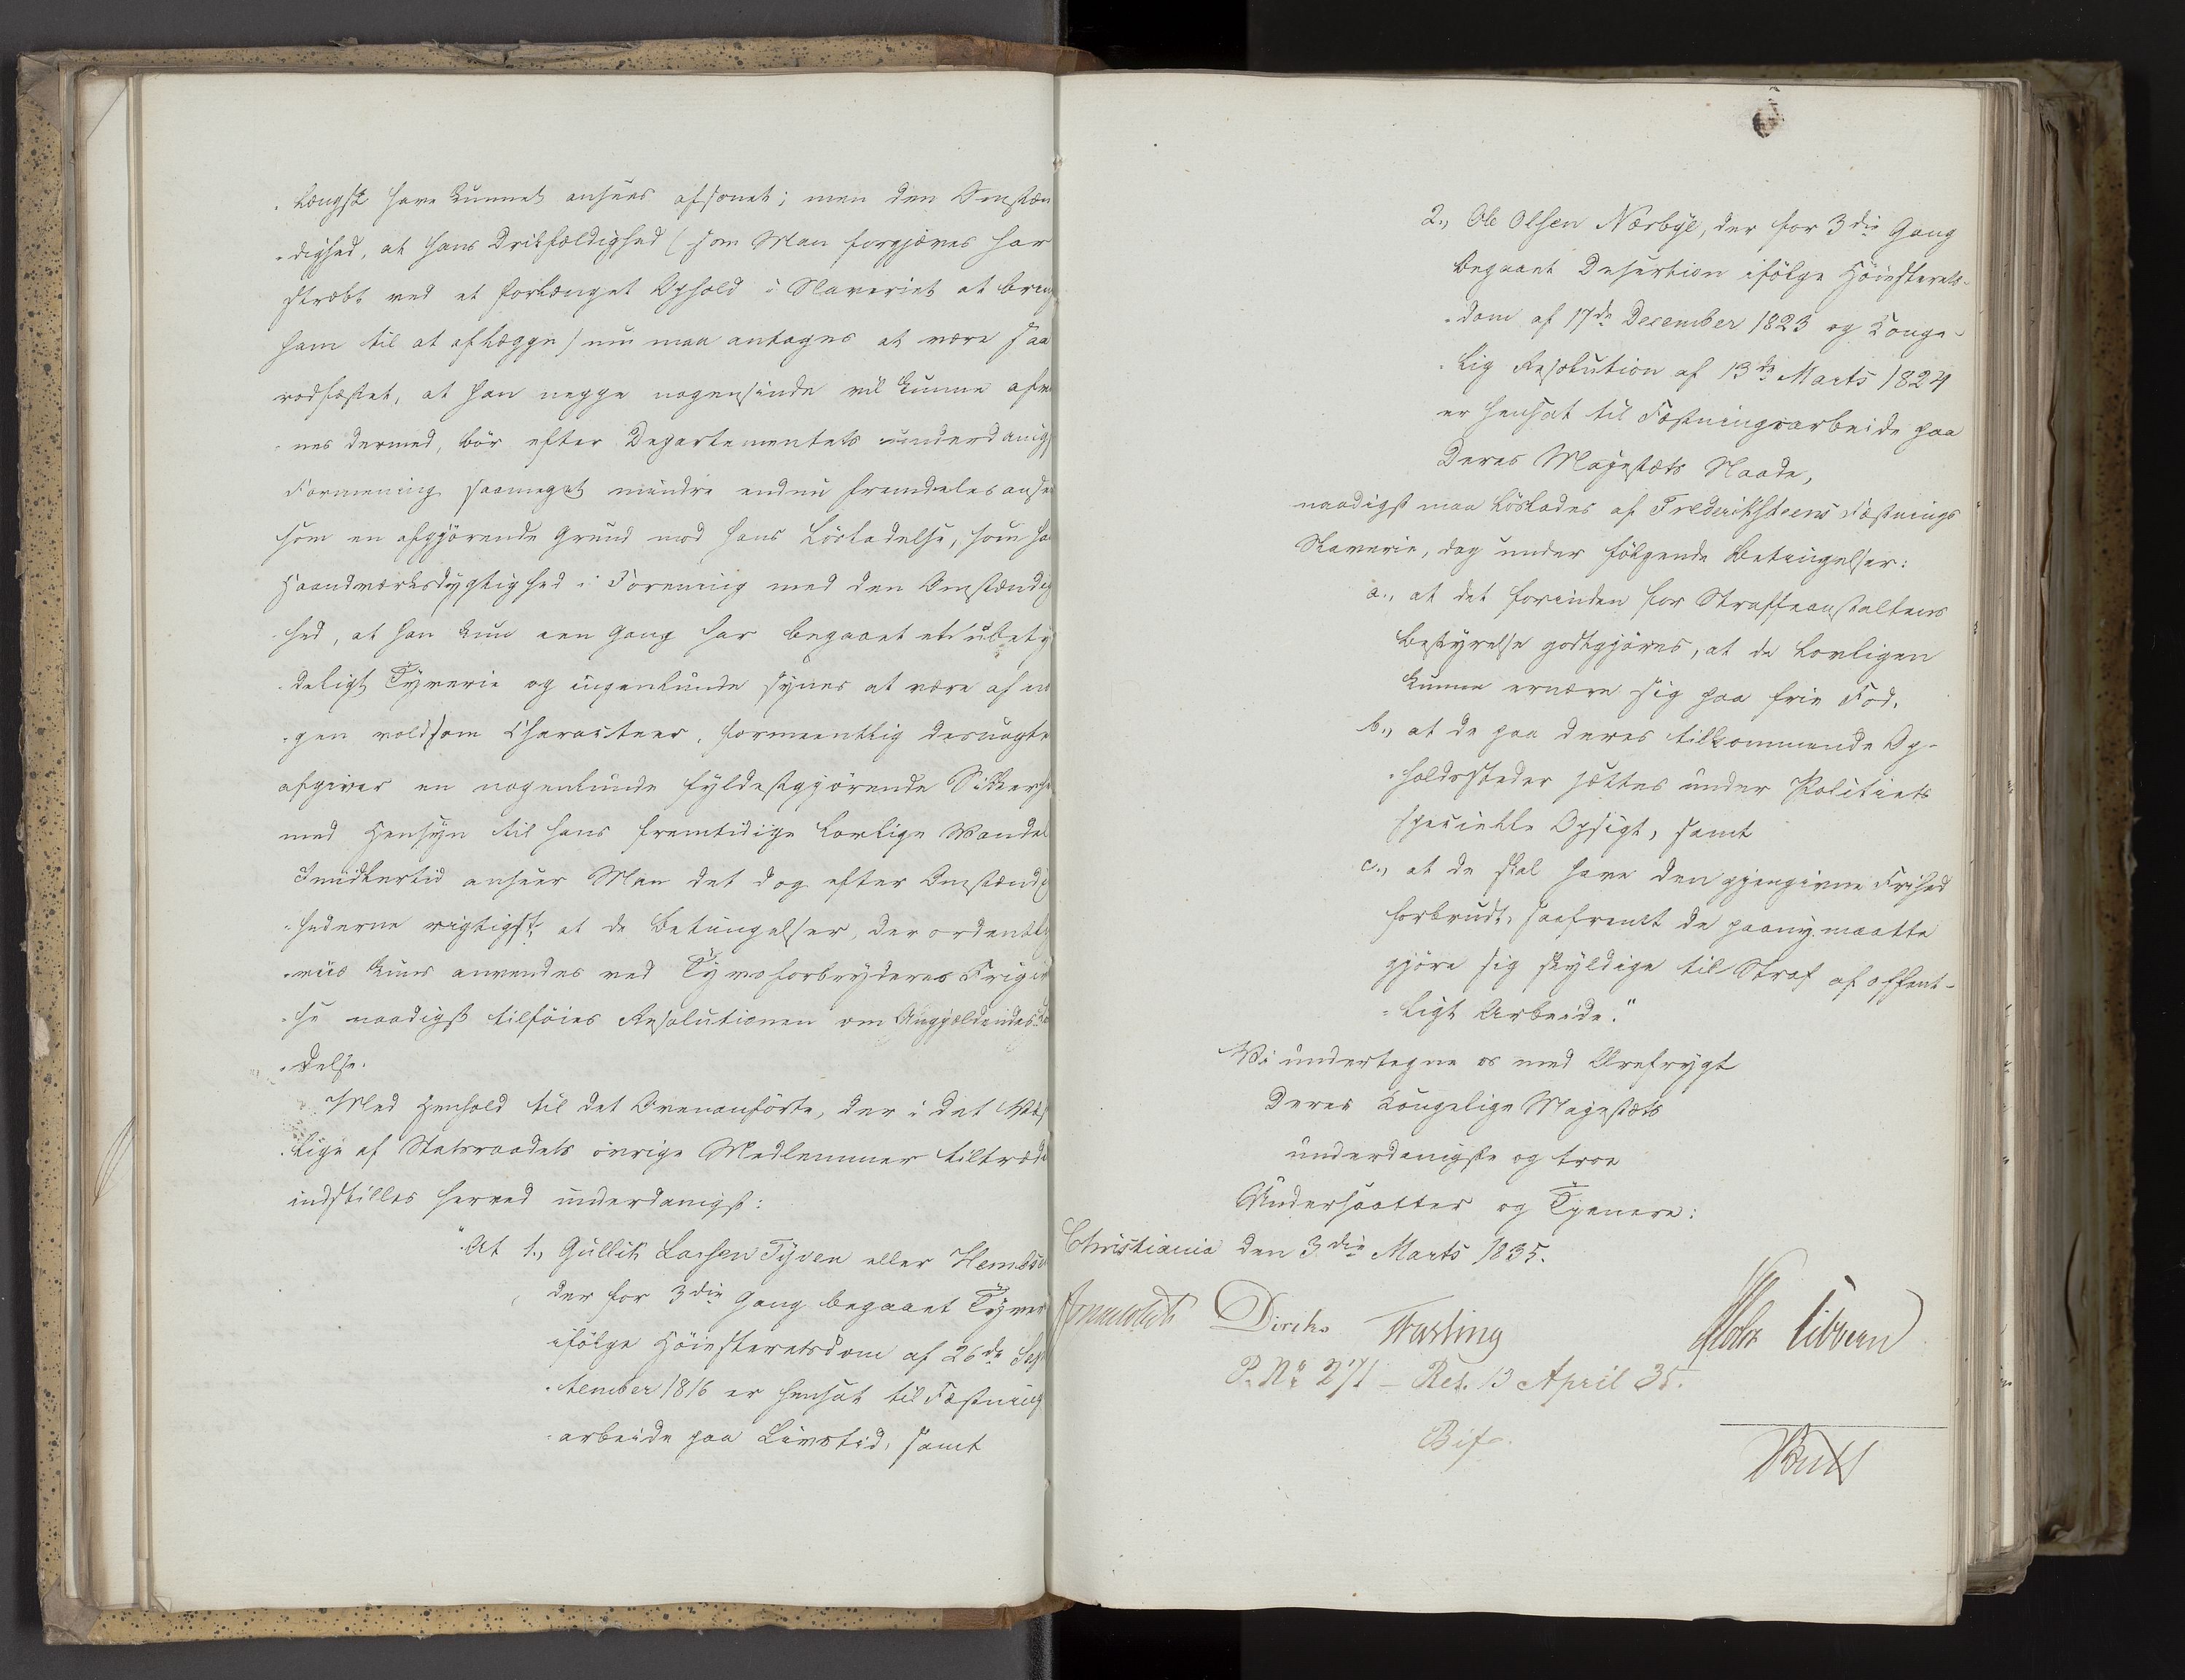 længst have kunnet ansees afsonet; men den Omstæn
dighed, at hans Drikfældighed (som Man forgjæves har
stræbt ved et forlænget Ophold i Slaveriet at bring
ham til at aflægge) nu maa antages at være saa
rodfæstet, at han neppe nogensinde vil kunne afvæ
nes dermed, bör efter Departementets underdanigs
Formening saameget mindre endnu fremdeles ansee
som en afgjörende Grund mod hans Lösladelse, som ha
Haandværksdygtighed i Forening med den Omstændig
hed, at han kun een Gang har begaaet et ubety
deligt Tyverie og ingenlunde synes at være af no
gen voldsom Charakteer, formeentlig desuagte
afgiver en nogenlunde fyldestgjörende Sikkerhe
med Hensyn til hans fremtidige lovlige Vandel
Imidlertid anseer Man det dog efter Omstændig
hederne rigtigst, at de Betingelser, der ordentlig
viis kuns anvendes ved Tyvsforbryderes Frigiv
se naadigst tilföies Resolutionen om Angjældendes
delse.
Med Henhold til det Ovenanförte, der i det Væs
lige af Statsraadets övrige Medlemmer tiltrædes
indstilles herved underdanigst:
"At 1., Gullik Larsen Tyven eller Hemb
der for 3die Gang begaaet Tyver
ifölge Höiesteretsdom af 26de Sep
tember 1816 er hensat til Fæstning
arbeide paa Livstid, samt
2., Ole Olsen Nærbye, der for 3die Gang
begaaet Desertion ifölge Höiesterets-
dom af 17de December 1823 og Konge-
lig Resolution af 13de Marts 1824
er hensat til Fæstningsarbeide paa
Deres Majestæts Naade,
naadigst maa löslades af Frederikssteens Fæstnings
Slaverie, dog under fölgende Betingelser:
a., at det forinden for Straffeanstaltens
Bestyrelse godtgjöres, at de lovligen
kunne ernære sig paa frie Fod,
b., at de paa deres tilkommende Op-
holdssteder sættes under Politiets
specielle Opsigt, samt
c., at de skal have den gjengivne Frihed
forbrudt, saafremt de paany maatte
gjöre sig skyldige til Straf af offent-
ligt Arbeide."
Vi undertegne os med Ærefrygt
Deres Kongelige Majestæts
underdanigste og troe
Undersaatter og Tjenere:
Christiania den 3die Marts 1835.
Diriks Fasting Holst Vibe
P. No 271 – Res. 13 April 35.
Bif.